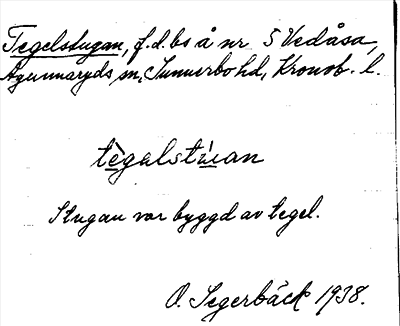 Tegelstugan, f.d. bs å nr 5 Vedåsa,
Agunnaryds sn, Sunnerbo hd, Kronob. l.
tègalstúan
Stugan var byggd av tegel.
O. Segerbäck 1938.